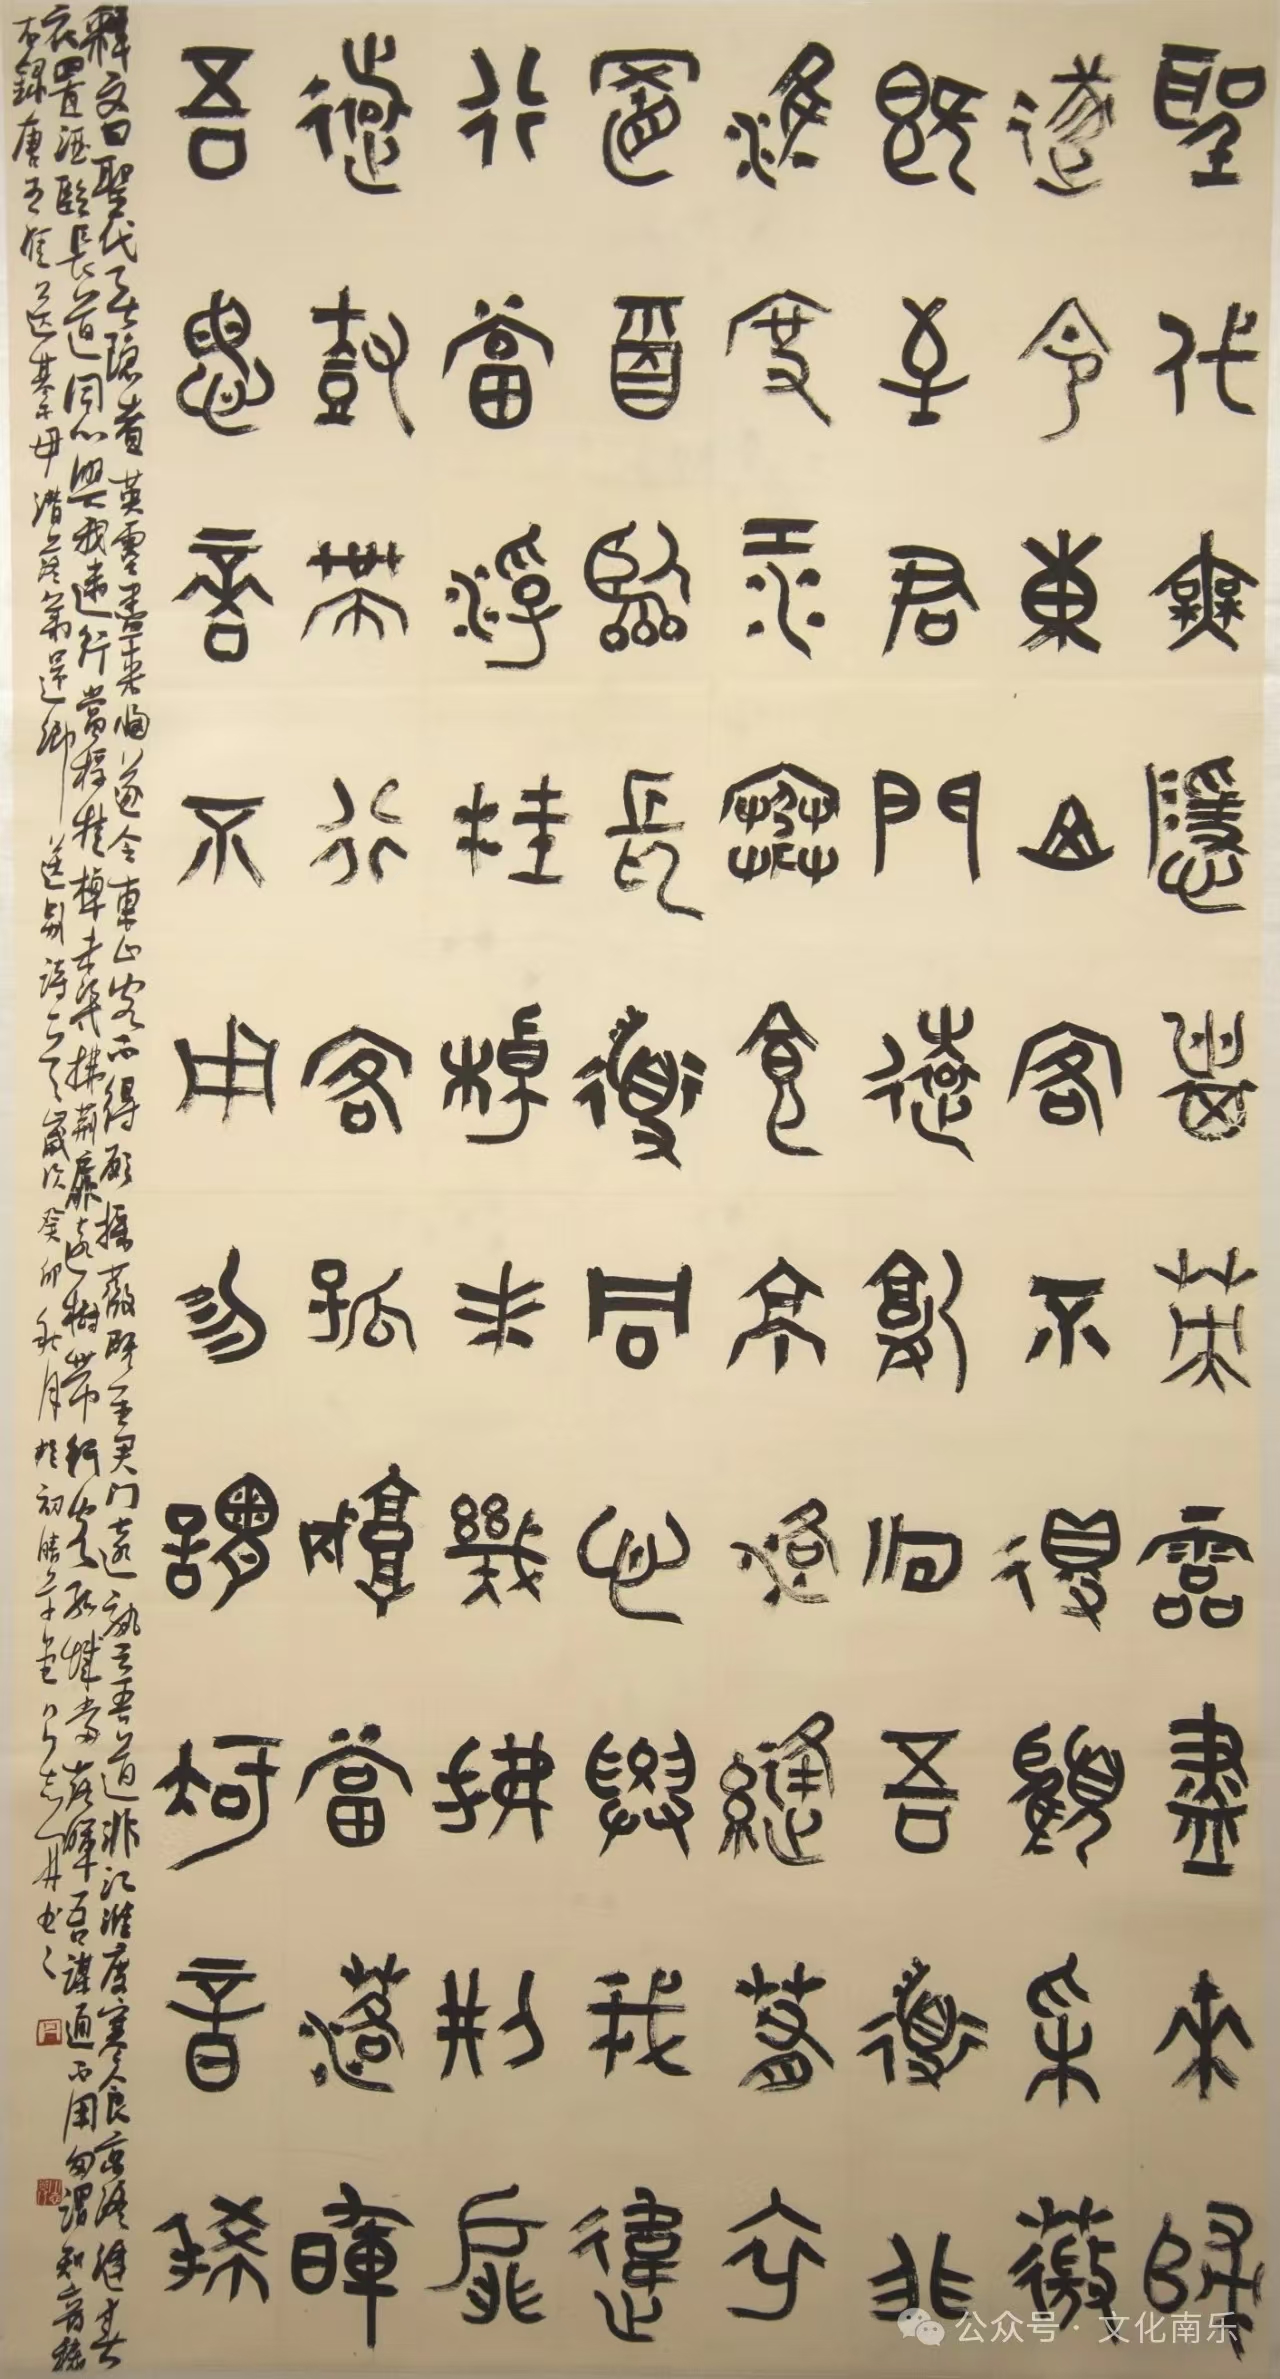 聖代無隱者英靈盡來歸
遂令東山客不得顧采薇
既至君門遠孰云吾道非
淮度江寒食京洛縫春衣
置酒臨長道同心與我違
行當浮桂棹未幾拂荊扉
遠樹帶行客孤城當落暉
吾謀適不用勿謂知音稀
釋文曰聖代無隱者英靈盡來歸遂令東山客不得顧採薇既至君门遠孰云吾道非江淮度寒食京洛縫春
衣置酒臨長道同心與我違行當桴桂棹未幾拂荊扉遠樹帶行客孤城當落暉吾謀適不用勿謂知音稀
右錄唐王維送綦毋潛落第還鄉送别詩一首歲次癸卯秋月於初草堂志丹书之
公众号·文化南乐